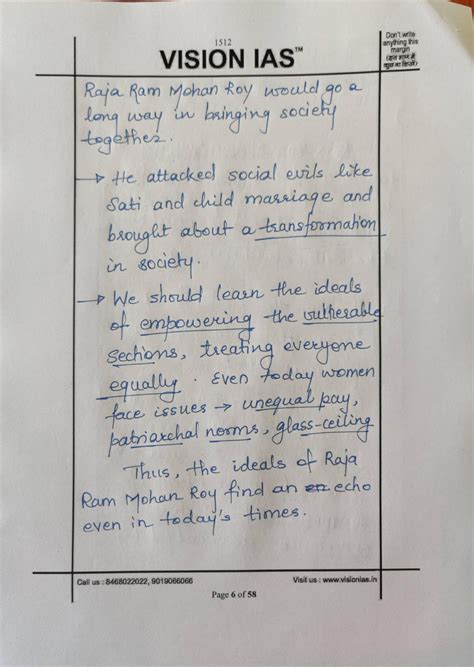 1512
VISION IAS™
Don't write
anything this
margin
(इस भाग में
कुछ ना लिखें)
Raja Ram Mohan Roy would go a
long way in bringing society
together.
→ He attacked social evils like
Sati and child marriage and
brought about a transformation
in society.
→ We should learn the ideals
of empowering the vulnerable
sections, treating everyone
equally. Even today women
face issues → unequal pay,
patriarchal norms, glass-ceiling
Thus, the ideals of Raja
Ram Mohan Roy find an echo
even in today's times.
Call us : 8468022022, 9019066066
Visit us : www.visionias.in
Page 6 of 58